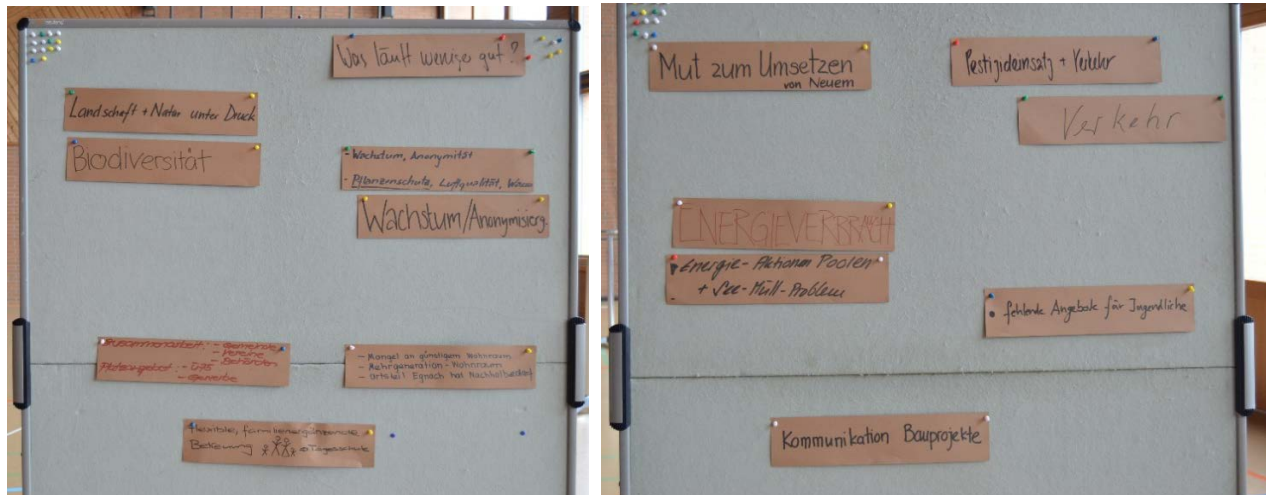 Was läuft weniger gut?
Landschaft + Natur unter Druck
Biodiversität
- Wachstum, Anonymität
- Pflanzenschutz, Luftqualität,
Wachstum/Anonymisierg.
Zusammenarbeit: - Gemeinde
- Vereine
- Behörden
Platzangebot: - ÖAS
- Gewerbe
- Mangel an günstigem Wohnraum
- Mehrgeneration-Wohnraum
- Ortsteil Egnach hat Nachholbedarf
Flexible, familienergänzende
Betreuung Tagesschule
Mut zum Umsetzen
von Neuem
Pestizideinsatz + Verkehr
Verkehr
ENERGIEVERBRAUCH
Energie-Aktionen Poolen
+ See-Müll-Problem
• fehlende Angebote für Jugendliche
Kommunikation Bauprojekte